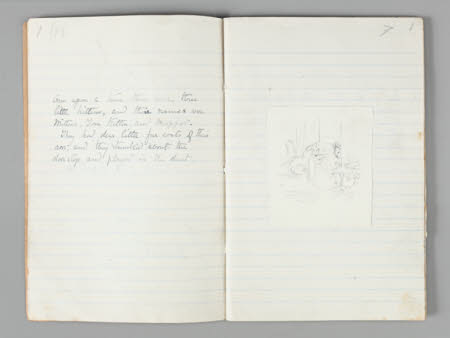 Once upon a time there were three
little kittens, and their names were
Mittens, Tom Kitten and Moppet.
They had dear little fur coats of their
own: and they tumbled about the
doorstep and played in the dust.